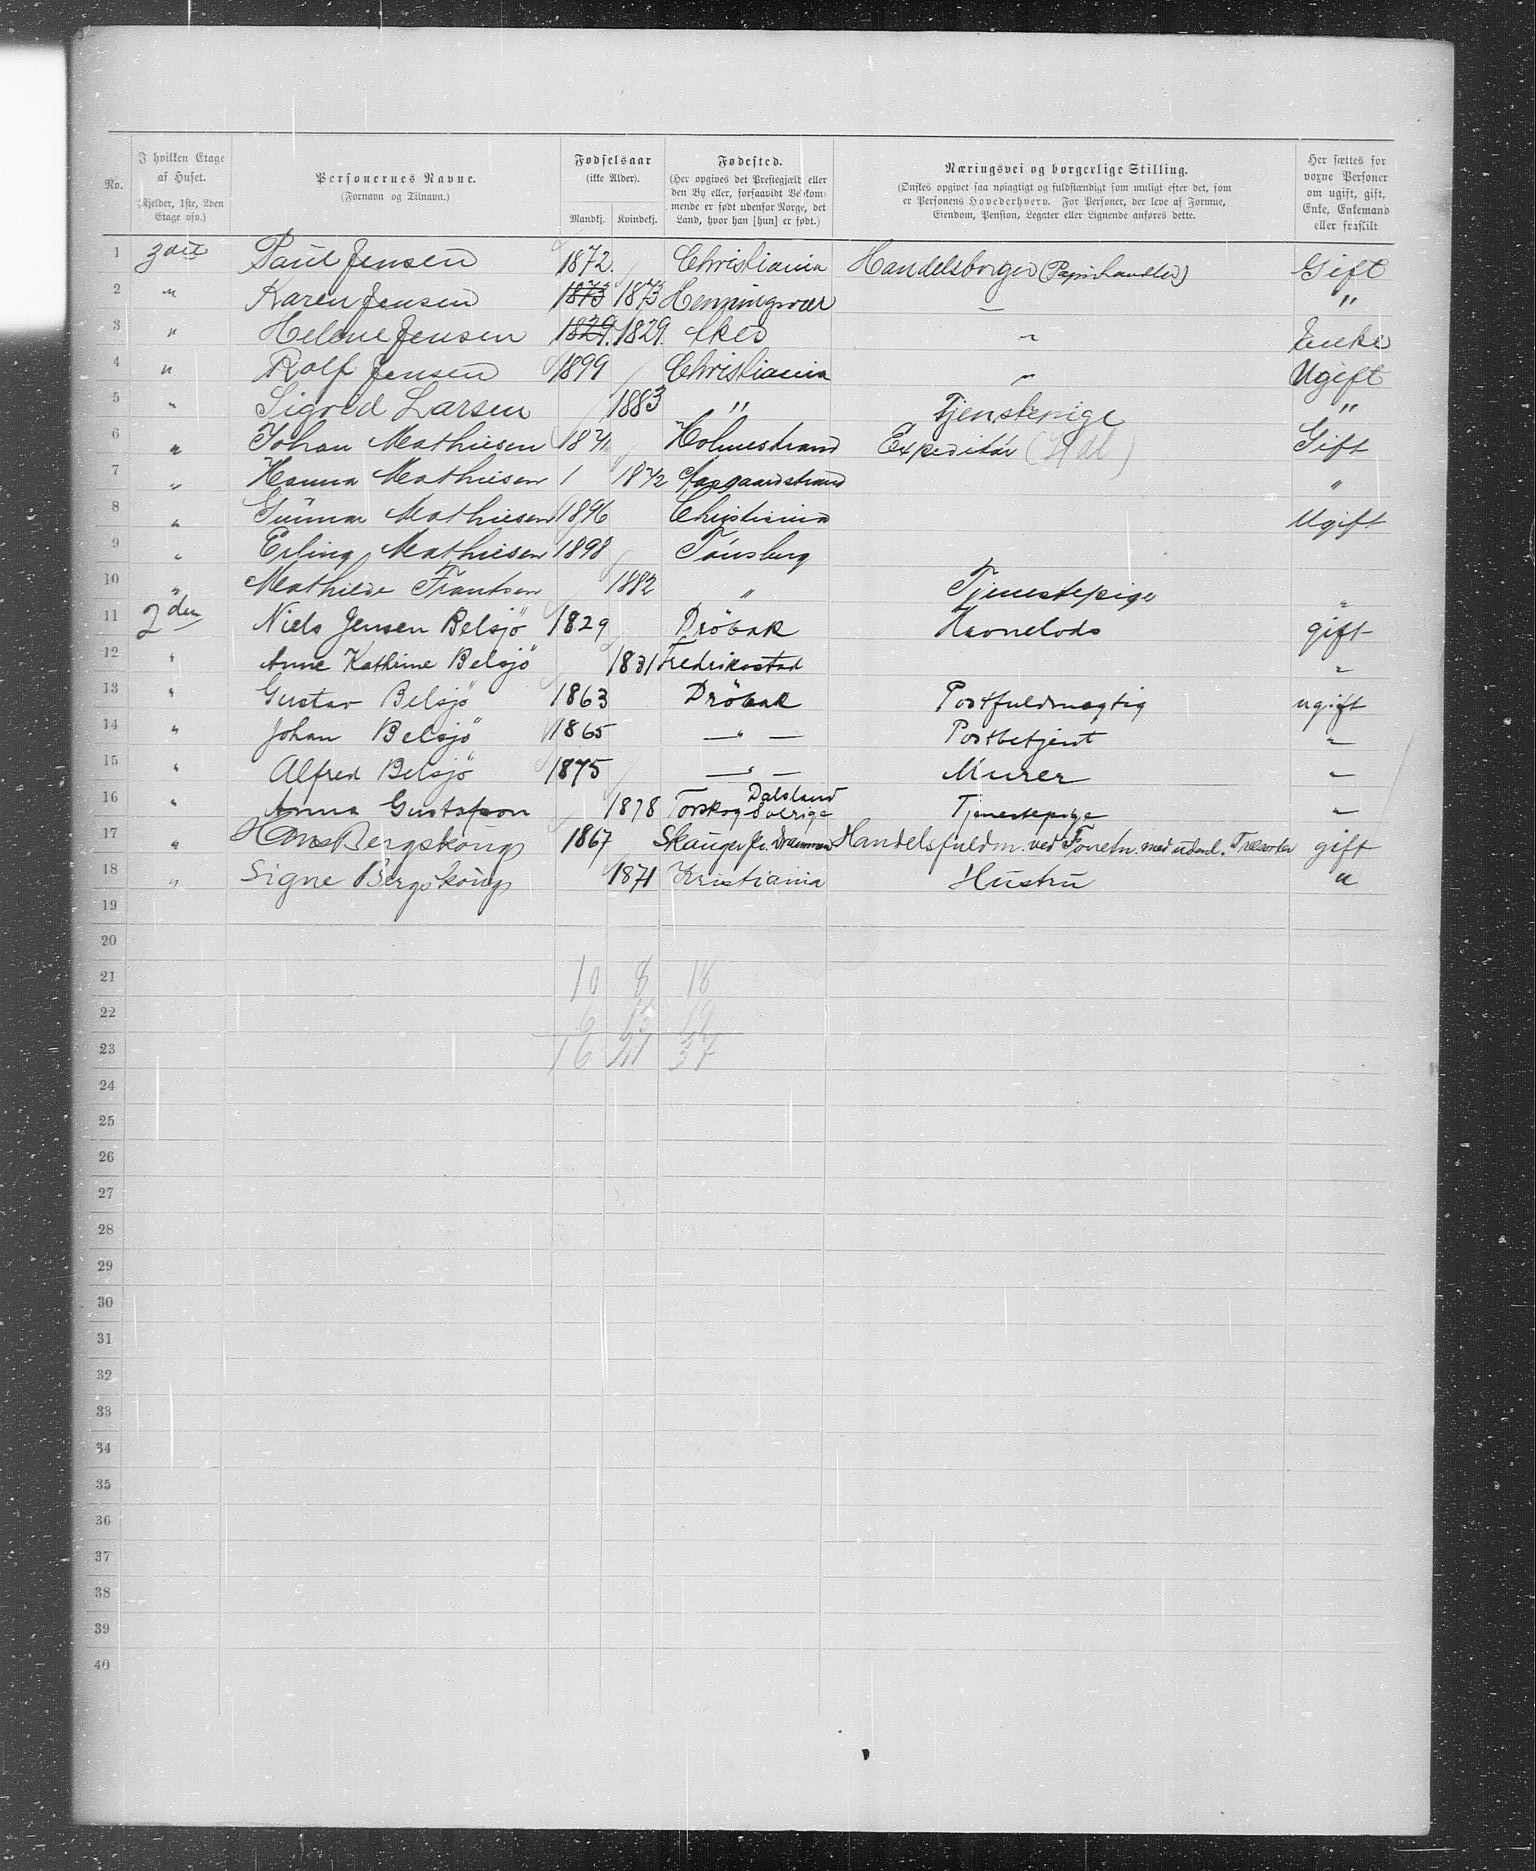 No.
I hvilken Etage af Huset. (Kjelder, 1ste, 2den Etage osv.)
Personernes Navne. (Fornavn og Tilnavn.)
Fødselsaar (ikke Alder). Mandkj. Kvindekj.
Fødested. (Her opgives det Prestegjæld eller den By eller, forsaavidt Vedkommende er født udenfor Norge, det Land, hvor han [hun] er født.)
Næringsvei og borgerlige Stilling. (Ønskes opgivet saa nøiagtigt og fuldstændigt som muligt efter det, som er Personens Hovederhverv. For Personer, der leve af Formue, Eiendom, Pension, Legater eller Lignende anføres dette.
Her sættes for voxne Personer om ugift, gift, Enke, Enkemand eller fraskilt.
1 Paul Jensen 1872. Christiania Handelsborger (Papirhandler) Gift
2 " Karen Jensen 1873 1873 Henningsvær — "
3 " Helene Jensen 1829. 1829. " Enke
4 " Rolf Jensen 1899 Christiania " Ugift
5 " Sigvld Larsen 1883 " Tjenstepige "
6 " Johan Mathiesen 1871 Holmestrand Expeditør Gift
7 " Hanna Mathiesen 1 1872 Aasgaardstrand "
8 " Gunnar Mathiesen 1896 Christiania Ugift
9 " Erling Mathiesen 1898 Tønsberg
10 " Mathilde Frantsen 1882 " Tjenestepige "
11 2den Niels Jensen Belsjö 1829 Dröbak Havnelods gift
12 " Anne Kathrine Belsjö 1831 Fredriksstad "
13 " Gustav Belsjö 1863 Dröbak Postfuldmægtig ugift
14 " Johan Belsjö 1865 — " — Postbetjent "
15 " Alfred Belsjö 1875 — " — Murer "
16 " Anna Gustafson 1878 Torskog Dalsland Sverige Tjenestepige "
17 " Hans Bergskaug 1867 Skauger pr. Drammen Handelsfuldm. ved Forretn. med udenl. Trævarer gift
18 " Signe Bergskaug 1871 Kristiania Hustru "
19
20
21 10 8 18
22
23 16 21 37
24
25
26
27
28
29
30
31
32
33
34
35
36
37
38
39
40